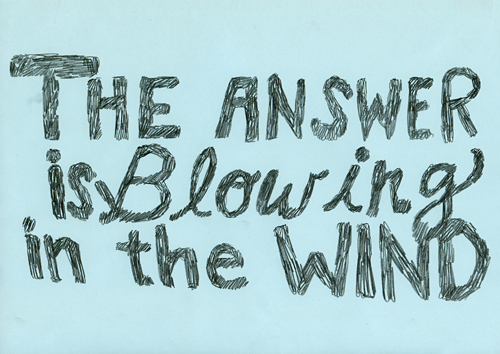 THE ANSWER
is Blowing
in the WIND